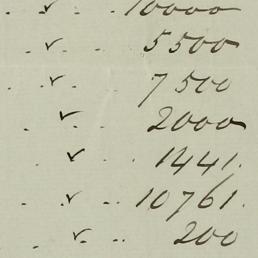 ✓ 10000
✓ 5500
✓ 7500
✓ 2000
✓ 1441.
✓ 10761.
✓ 200